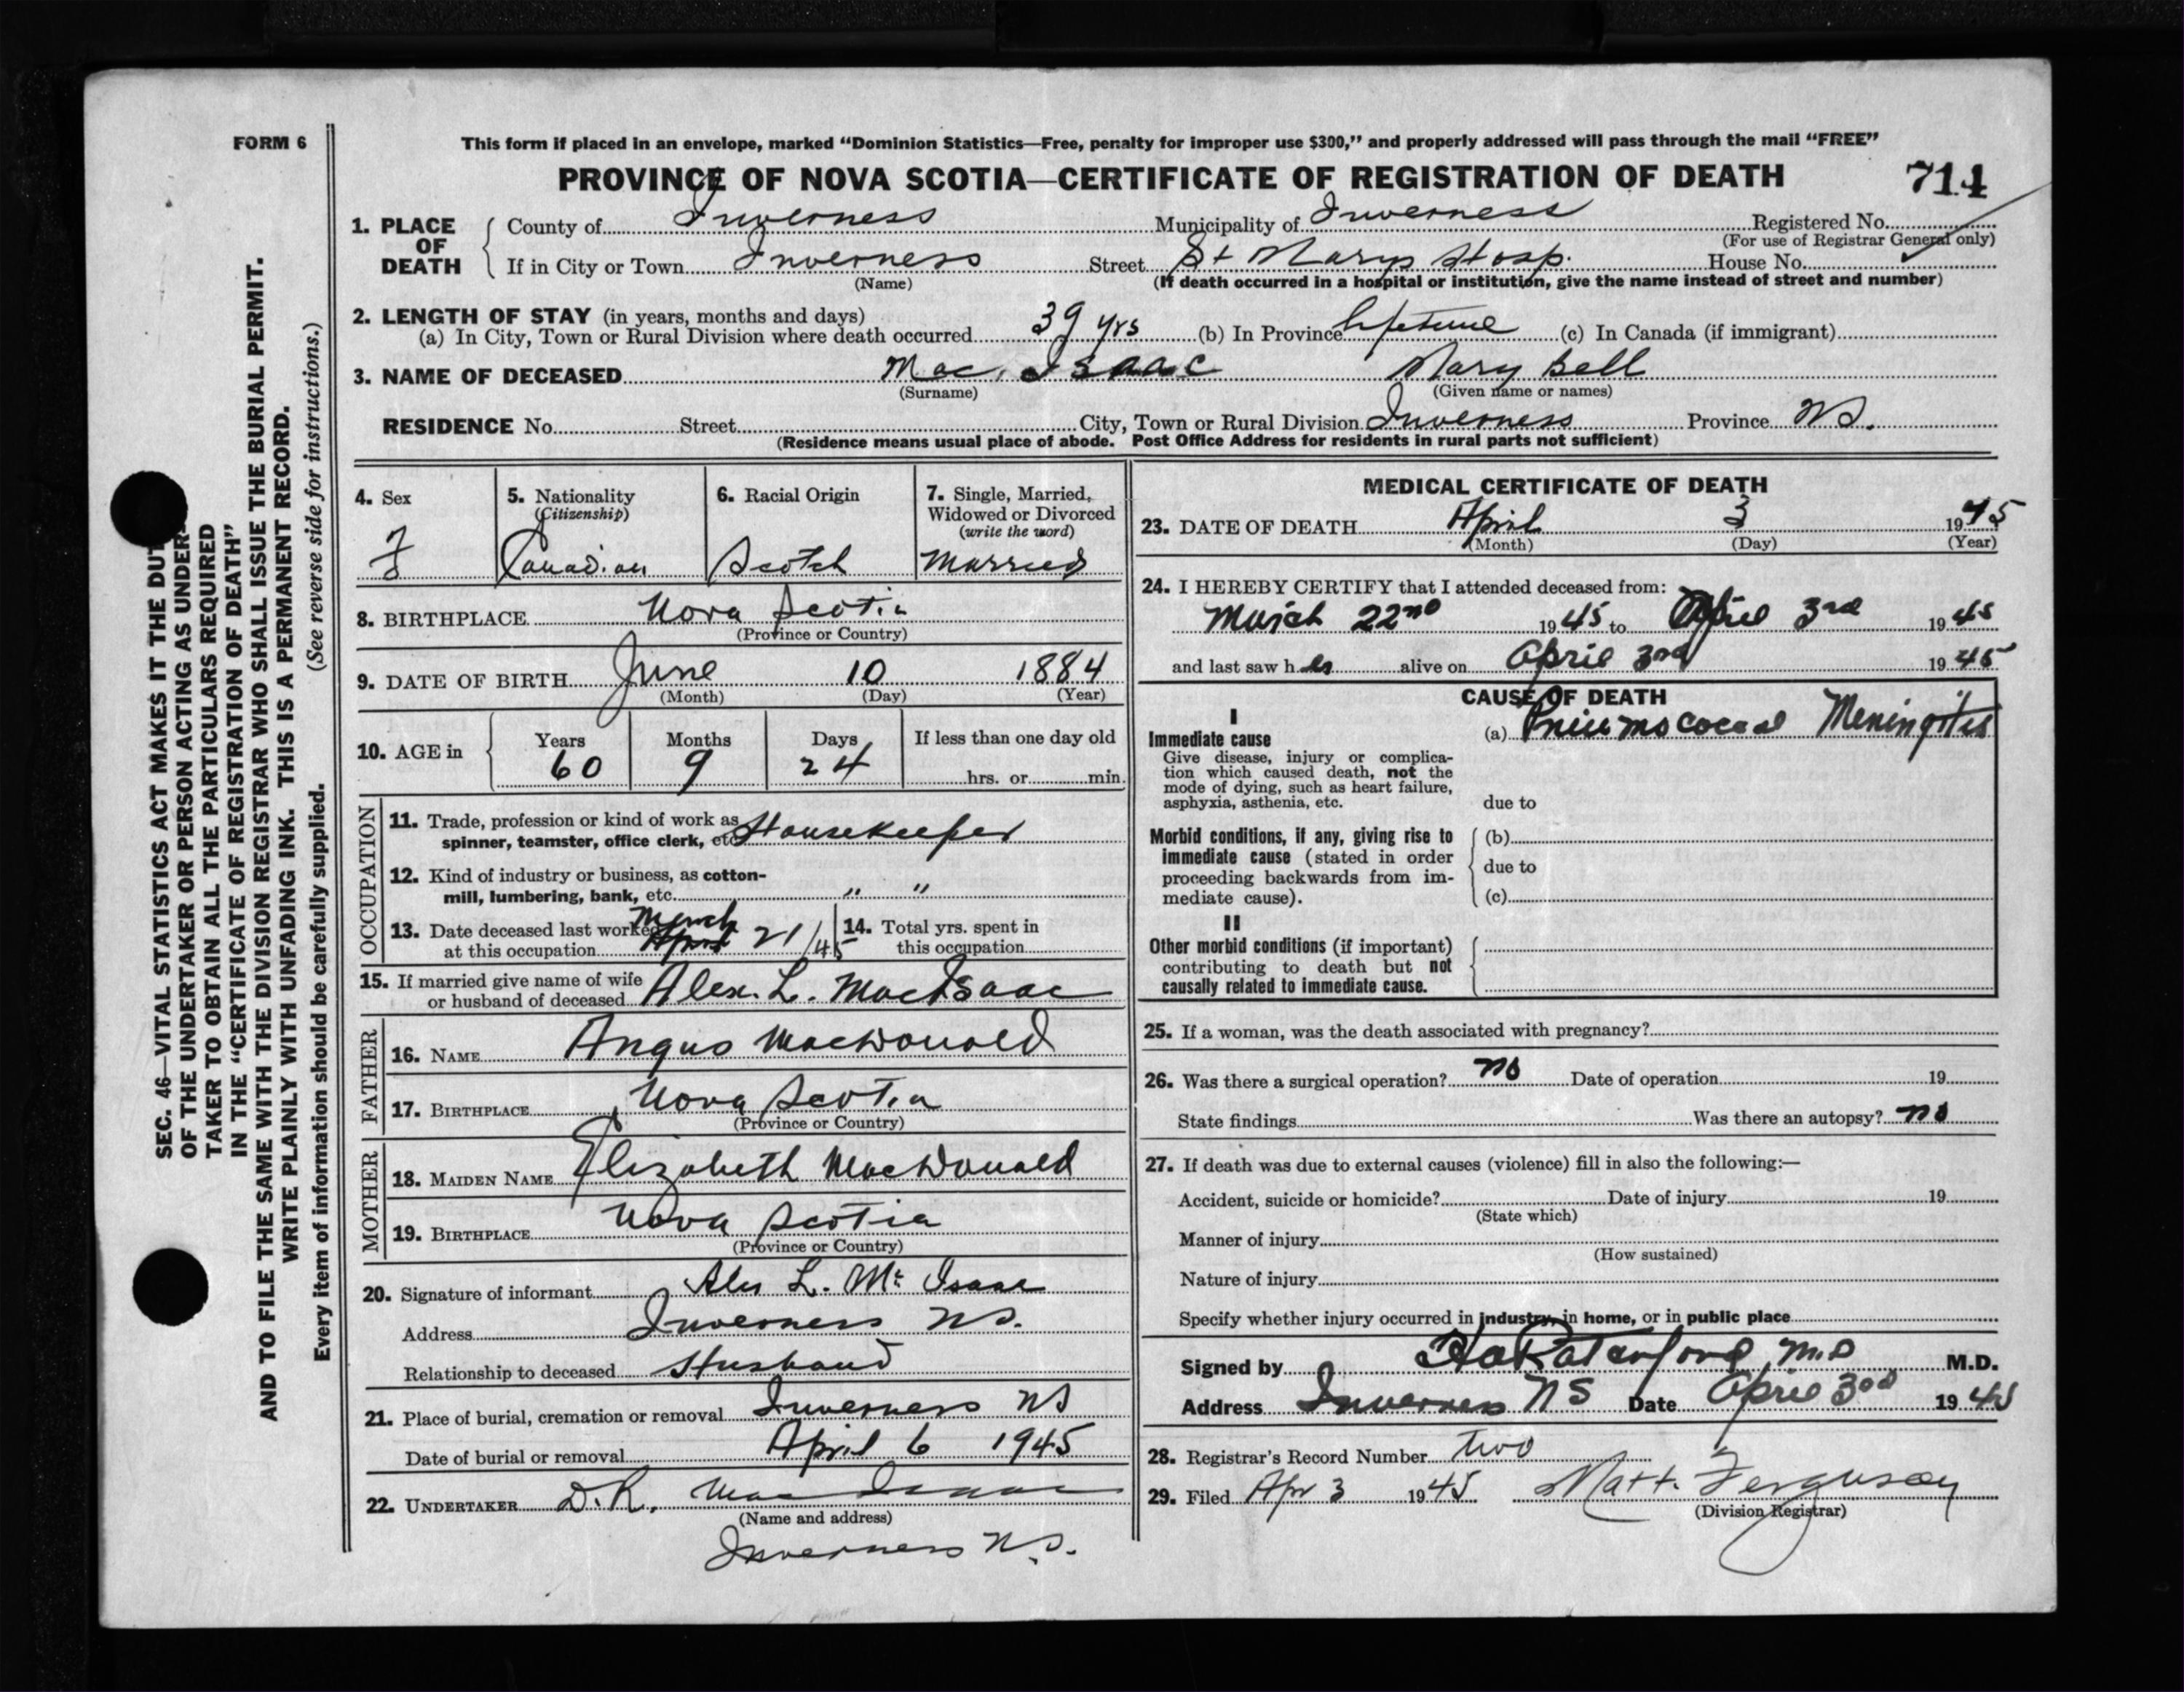 FORM 6
This form if placed in an envelope, marked “Dominion Statistics—Free, penalty for improper use $300,” and properly addressed will pass through the mail “FREE”
PROVINCE OF NOVA SCOTIA—CERTIFICATE OF REGISTRATION OF DEATH 714
1. PLACE OF DEATH
County of Inverness Municipality of Inverness Registered No.
(For use of Registrar General only)
If in City or Town Inverness Street St Marys Hosp. House No.
(Name) (If death occurred in a hospital or institution, give the name instead of street and number)
2. LENGTH OF STAY (in years, months and days)
(a) In City, Town or Rural Division where death occurred 39 yrs (b) In Province lifetime (c) In Canada (if immigrant)
3. NAME OF DECEASED Mac. Isaac Mary Bell
(Surname) (Given name or names)
RESIDENCE No. Street City, Town or Rural Division Inverness Province N.S.
(Residence means usual place of abode. Post Office Address for residents in rural parts not sufficient)
4. Sex
F
5. Nationality
(Citizenship)
Canadian
6. Racial Origin
Scotch
7. Single, Married,
Widowed or Divorced
(write the word)
Married
8. BIRTHPLACE Nova Scotia
(Province or Country)
9. DATE OF BIRTH June 10 1884
(Month) (Day) (Year)
10. AGE in Years Months Days If less than one day old
60 9 24 hrs. or min.
OCCUPATION
11. Trade, profession or kind of work as
spinner, teamster, office clerk, etc. Housekeeper
12. Kind of industry or business, as cotton-
mill, lumbering, bank, etc. " "
13. Date deceased last worked March
at this occupation April 21/45
14. Total yrs. spent in
this occupation
15. If married give name of wife
or husband of deceased Alex. L. MacIsaac
FATHER
16. NAME Angus MacDonald
17. BIRTHPLACE Nova Scotia
(Province or Country)
MOTHER
18. MAIDEN NAME Elizabeth MacDonald
19. BIRTHPLACE Nova Scotia
(Province or Country)
20. Signature of informant Alex L. Mc Isaac
Address Inverness N.S.
Relationship to deceased Husband
21. Place of burial, cremation or removal Inverness NS
Date of burial or removal April 6 1945
22. UNDERTAKER D.R. MacIsaac
(Name and address)
Inverness N.S.
MEDICAL CERTIFICATE OF DEATH
23. DATE OF DEATH April 3 1945
(Month) (Day) (Year)
24. I HEREBY CERTIFY that I attended deceased from:
March 22nd 1945 to April 3rd 1945
and last saw her alive on April 3rd 1945
CAUSE OF DEATH
I
Immediate cause
Give disease, injury or complica-
tion which caused death, not the
mode of dying, such as heart failure,
asphyxia, asthenia, etc.
(a) Pneumococcal Meningitis
due to
Morbid conditions, if any, giving rise to
immediate cause (stated in order
proceeding backwards from im-
mediate cause).
(b)
due to
(c)
II
Other morbid conditions (if important)
contributing to death but not
causally related to immediate cause.
25. If a woman, was the death associated with pregnancy?
26. Was there a surgical operation? no Date of operation 19
State findings Was there an autopsy? no
27. If death was due to external causes (violence) fill in also the following:—
Accident, suicide or homicide? Date of injury 19
(State which)
Manner of injury
(How sustained)
Nature of injury
Specify whether injury occurred in industry, in home, or in public place
Signed by M.D M.D.
Address Inverness NS Date April 3rd 1945
28. Registrar's Record Number two
29. Filed Apr 3 1945 Matt. Ferguson
(Division Registrar)
SEC. 46—VITAL STATISTICS ACT MAKES IT THE DUT
OF THE UNDERTAKER OR PERSON ACTING AS UNDER-
TAKER TO OBTAIN ALL THE PARTICULARS REQUIRED
IN THE “CERTIFICATE OF REGISTRATION OF DEATH”
AND TO FILE THE SAME WITH THE DIVISION REGISTRAR WHO SHALL ISSUE THE BURIAL PERMIT.
WRITE PLAINLY WITH UNFADING INK. THIS IS A PERMANENT RECORD.
Every item of information should be carefully supplied. (See reverse side for instructions.)